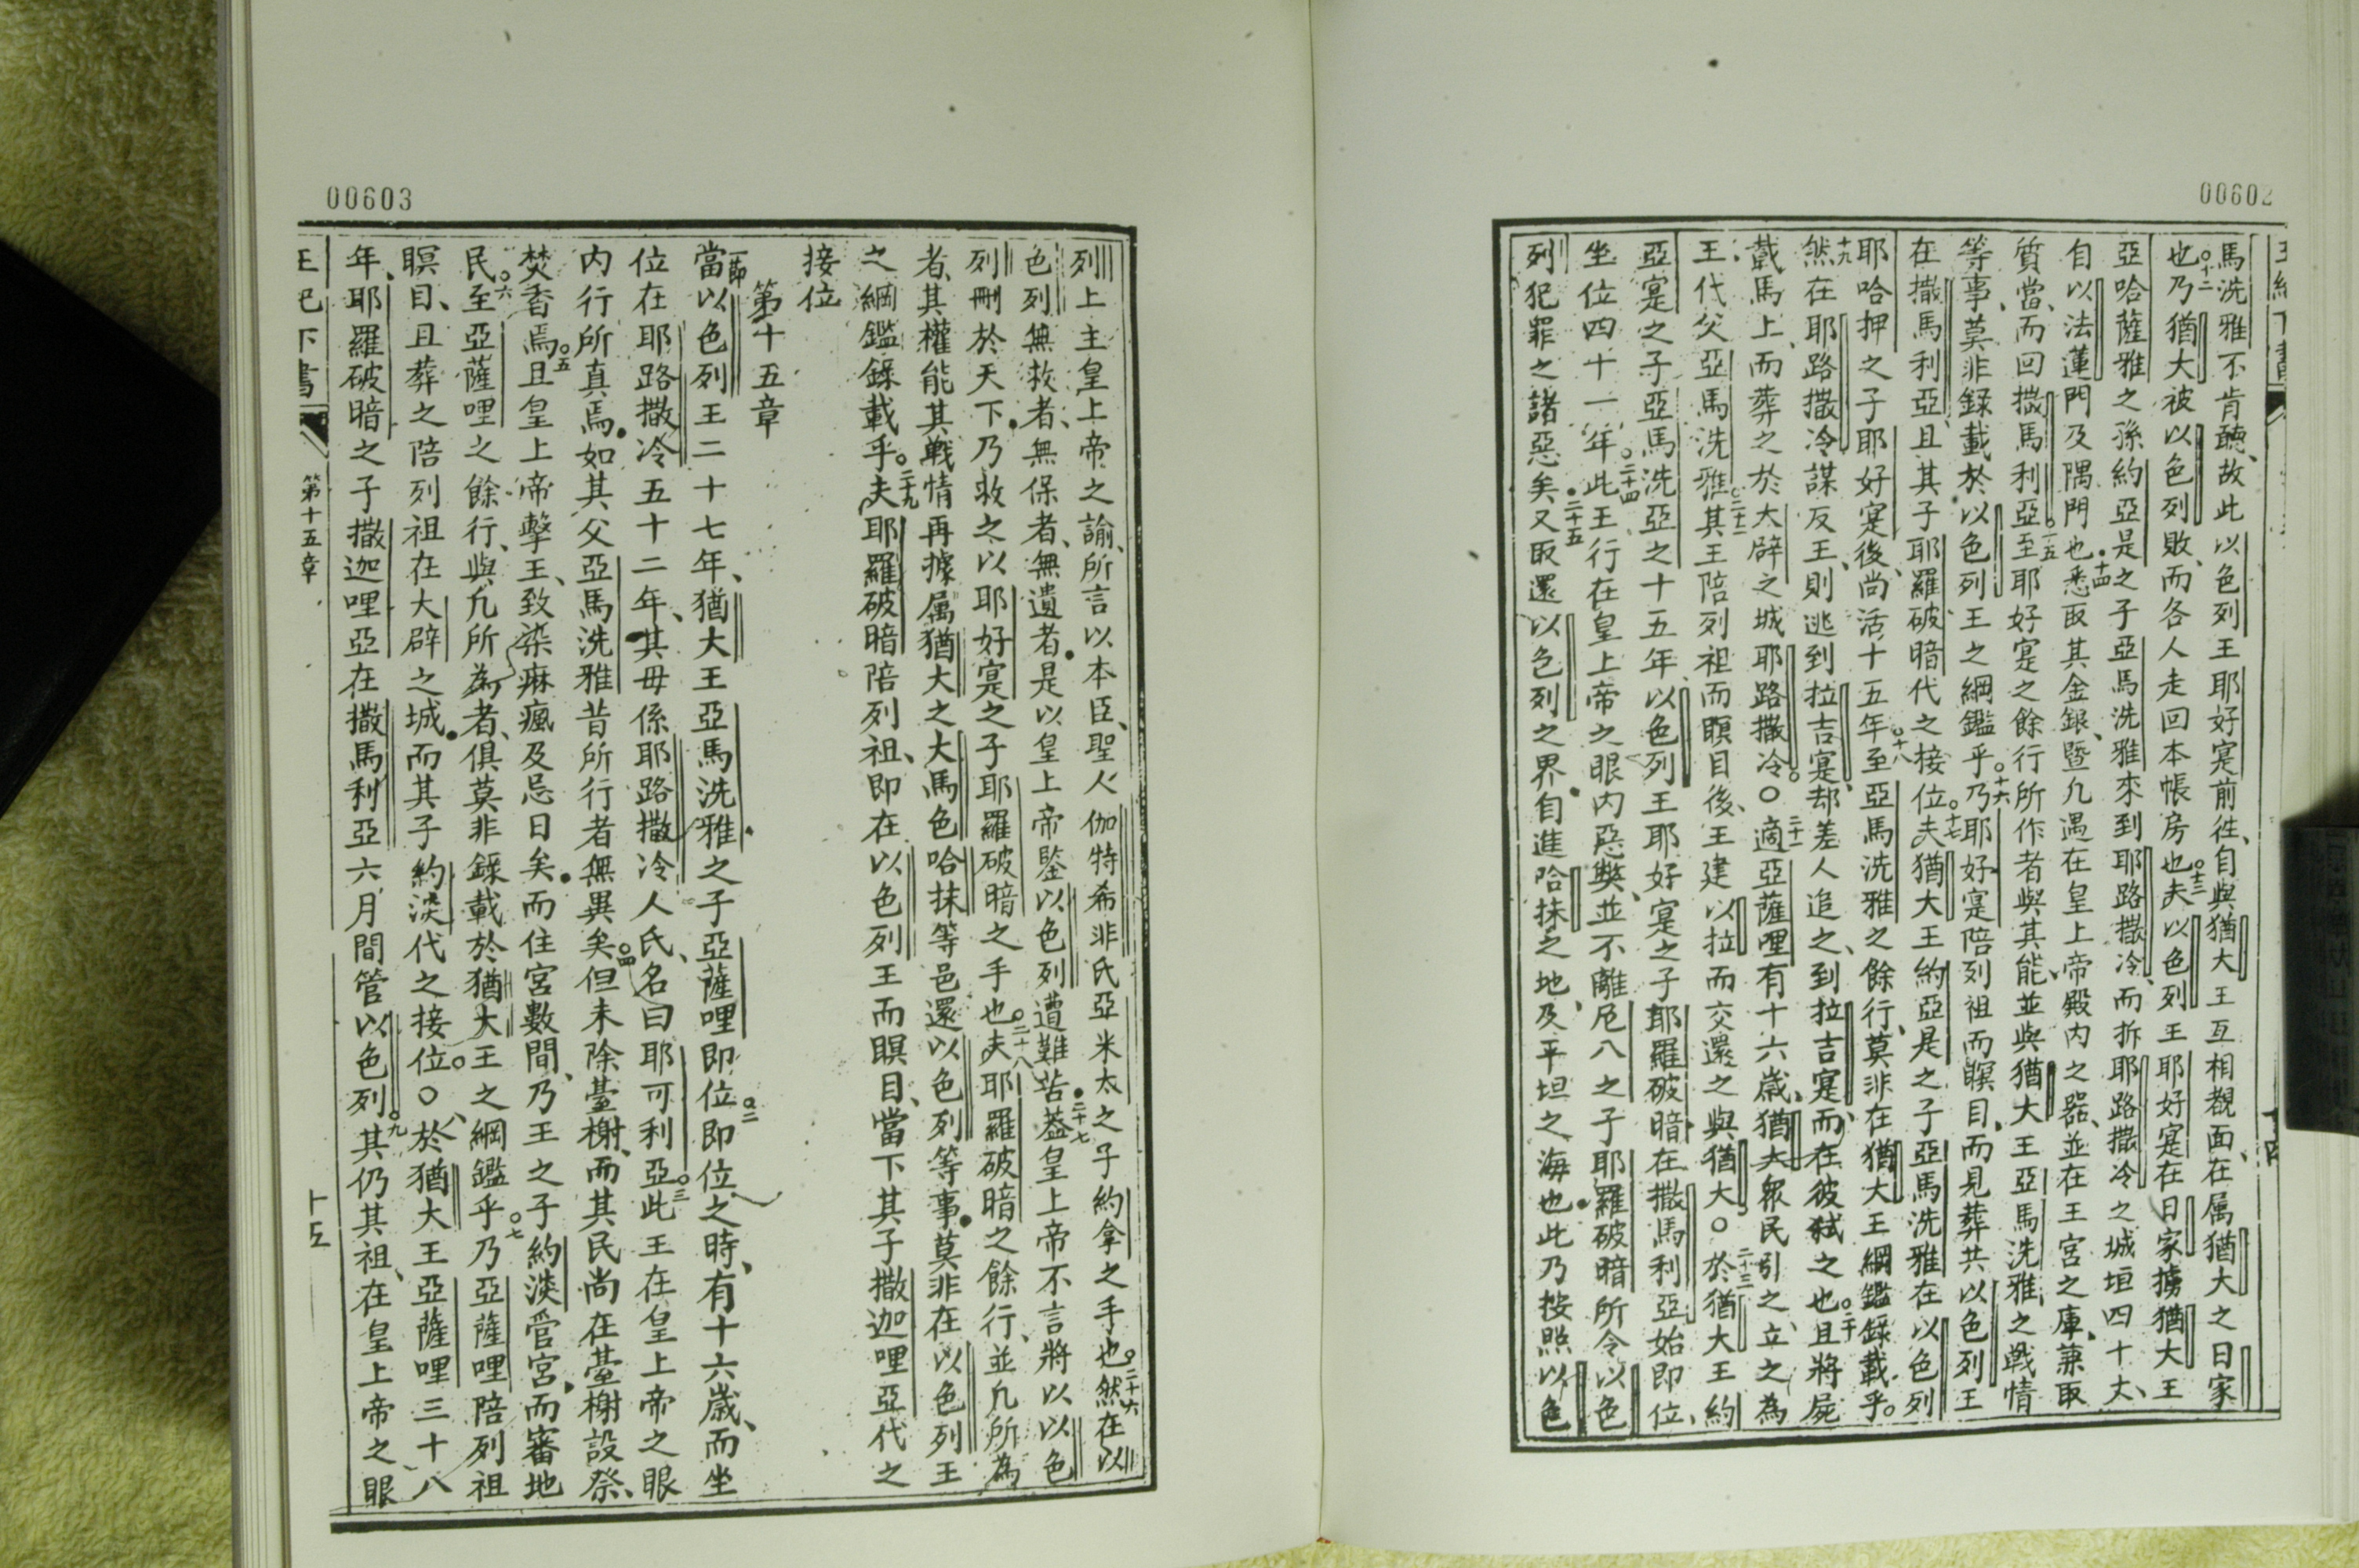 00602
馬洗雅不肯聽、故此以色列王耶好寔前徃、自與猶大王互相覩面、在属猶大之日家
也○十二乃猶大被以色列敗、而各人走回本帳房也○十三夫以色列王耶好寔在日家擄猶大王
亞哈薩雅之孫約亞是之子亞馬洗雅來到耶路撒冷、而拆耶路撒冷之城垣四十丈、
自以法蓮門及隅門也●十四悉取其金銀、暨凢遇在皇上帝殿内之器、並在王宮之庫、蒹取
質當、而回撒馬利亞○十五至耶好寔之餘行所作者與其能、並與猶大王亞馬洗雅、之戦情
等事、莫非錄載於以色列王之綱鑑乎○十六乃耶好寔陪列祖而瞑目、而見葬共以色列王
在撒馬利亞、且其子耶羅破暗代之接位○十七夫猶大王約亞是之子亞馬洗雅在以色列
耶哈押之子耶好寔後、尚活十五年○十八至亞馬洗雅之餘行、莫非在猶大王綱鑑錄載乎。
十九然在耶路撒冷謀反王、則逃到拉吉寔、却差人追之、到拉吉寔、而在彼弑之也○二十且將屍
載馬上、而葬之於大辟之城耶路撒冷。○二十一適亞薩哩有十六歲、猶大衆民引之、立之為
王、代父亞馬洗雅○二十二其王陪列祖而瞑目後、王建以拉而交還之與猶大。○二十三於猶大王約
亞寔之子亞馬洗亞之十五年、以色列王耶好寔之子耶羅破暗在撒馬利亞始即位、
坐位四十一年○二十四此王行在皇上帝之眼内惡獘、並不離厄八之子耶羅破暗所令以色
列犯罪之諸惡矣●二十五又取還以色列之界、自進哈抹之地、及平坦之海也●此乃按照以色
00603
列上主皇上帝之諭、所言以本臣、聖人伽特希非氏亞米太之子約拿之手也○二十六然在以
色列無救者、無保者、無遺者●是以皇上帝鍳以色列遭難苦●二十七葢皇上帝不言將以以色
列刪於天下●乃救之以耶好寔之子耶羅破暗之手也○二十八夫耶羅破暗之餘行、並凢所為
者、其權能、其戦情再據属猶大之大馬色哈抹等邑還以色列等事●莫非在以色列王
之綱鑑錄載乎○二十九夫耶羅破暗陪列祖、即在以色列王而瞑目、當下其子撒迦哩亞代之
接位
第十五章
一節當以色列王二十七年、猶大王亞馬洗雅之子亞薩哩即位○二即位之時、有十六歲、而坐
位在耶路撒冷五十二年、其母係耶路撒冷人氏、名曰耶可利亞○三此王在皇上帝之眼
内行所真焉●如其父亞馬洗雅昔所行者無異矣○四但未除臺榭、而其民尚在臺榭設祭、
焚香焉○五且皇上帝擊王、致染痲瘋及忌日矣●而住宮數間、乃王之子約淡管宮、而審地
民○六至亞薩哩之餘行、與凢所為者、俱莫非錄載於猶大王之綱鑑乎○七乃亞薩哩陪列祖
瞑目、且葬之陪列祖在大辟之城●而其子約淡代之接位。○八於猶大王亞薩哩三十八
年、耶羅破暗之子撒迦哩亞在撒馬利亞六月間管以色列○九其仍其祖、在皇上帝之眼
第十五章
十五